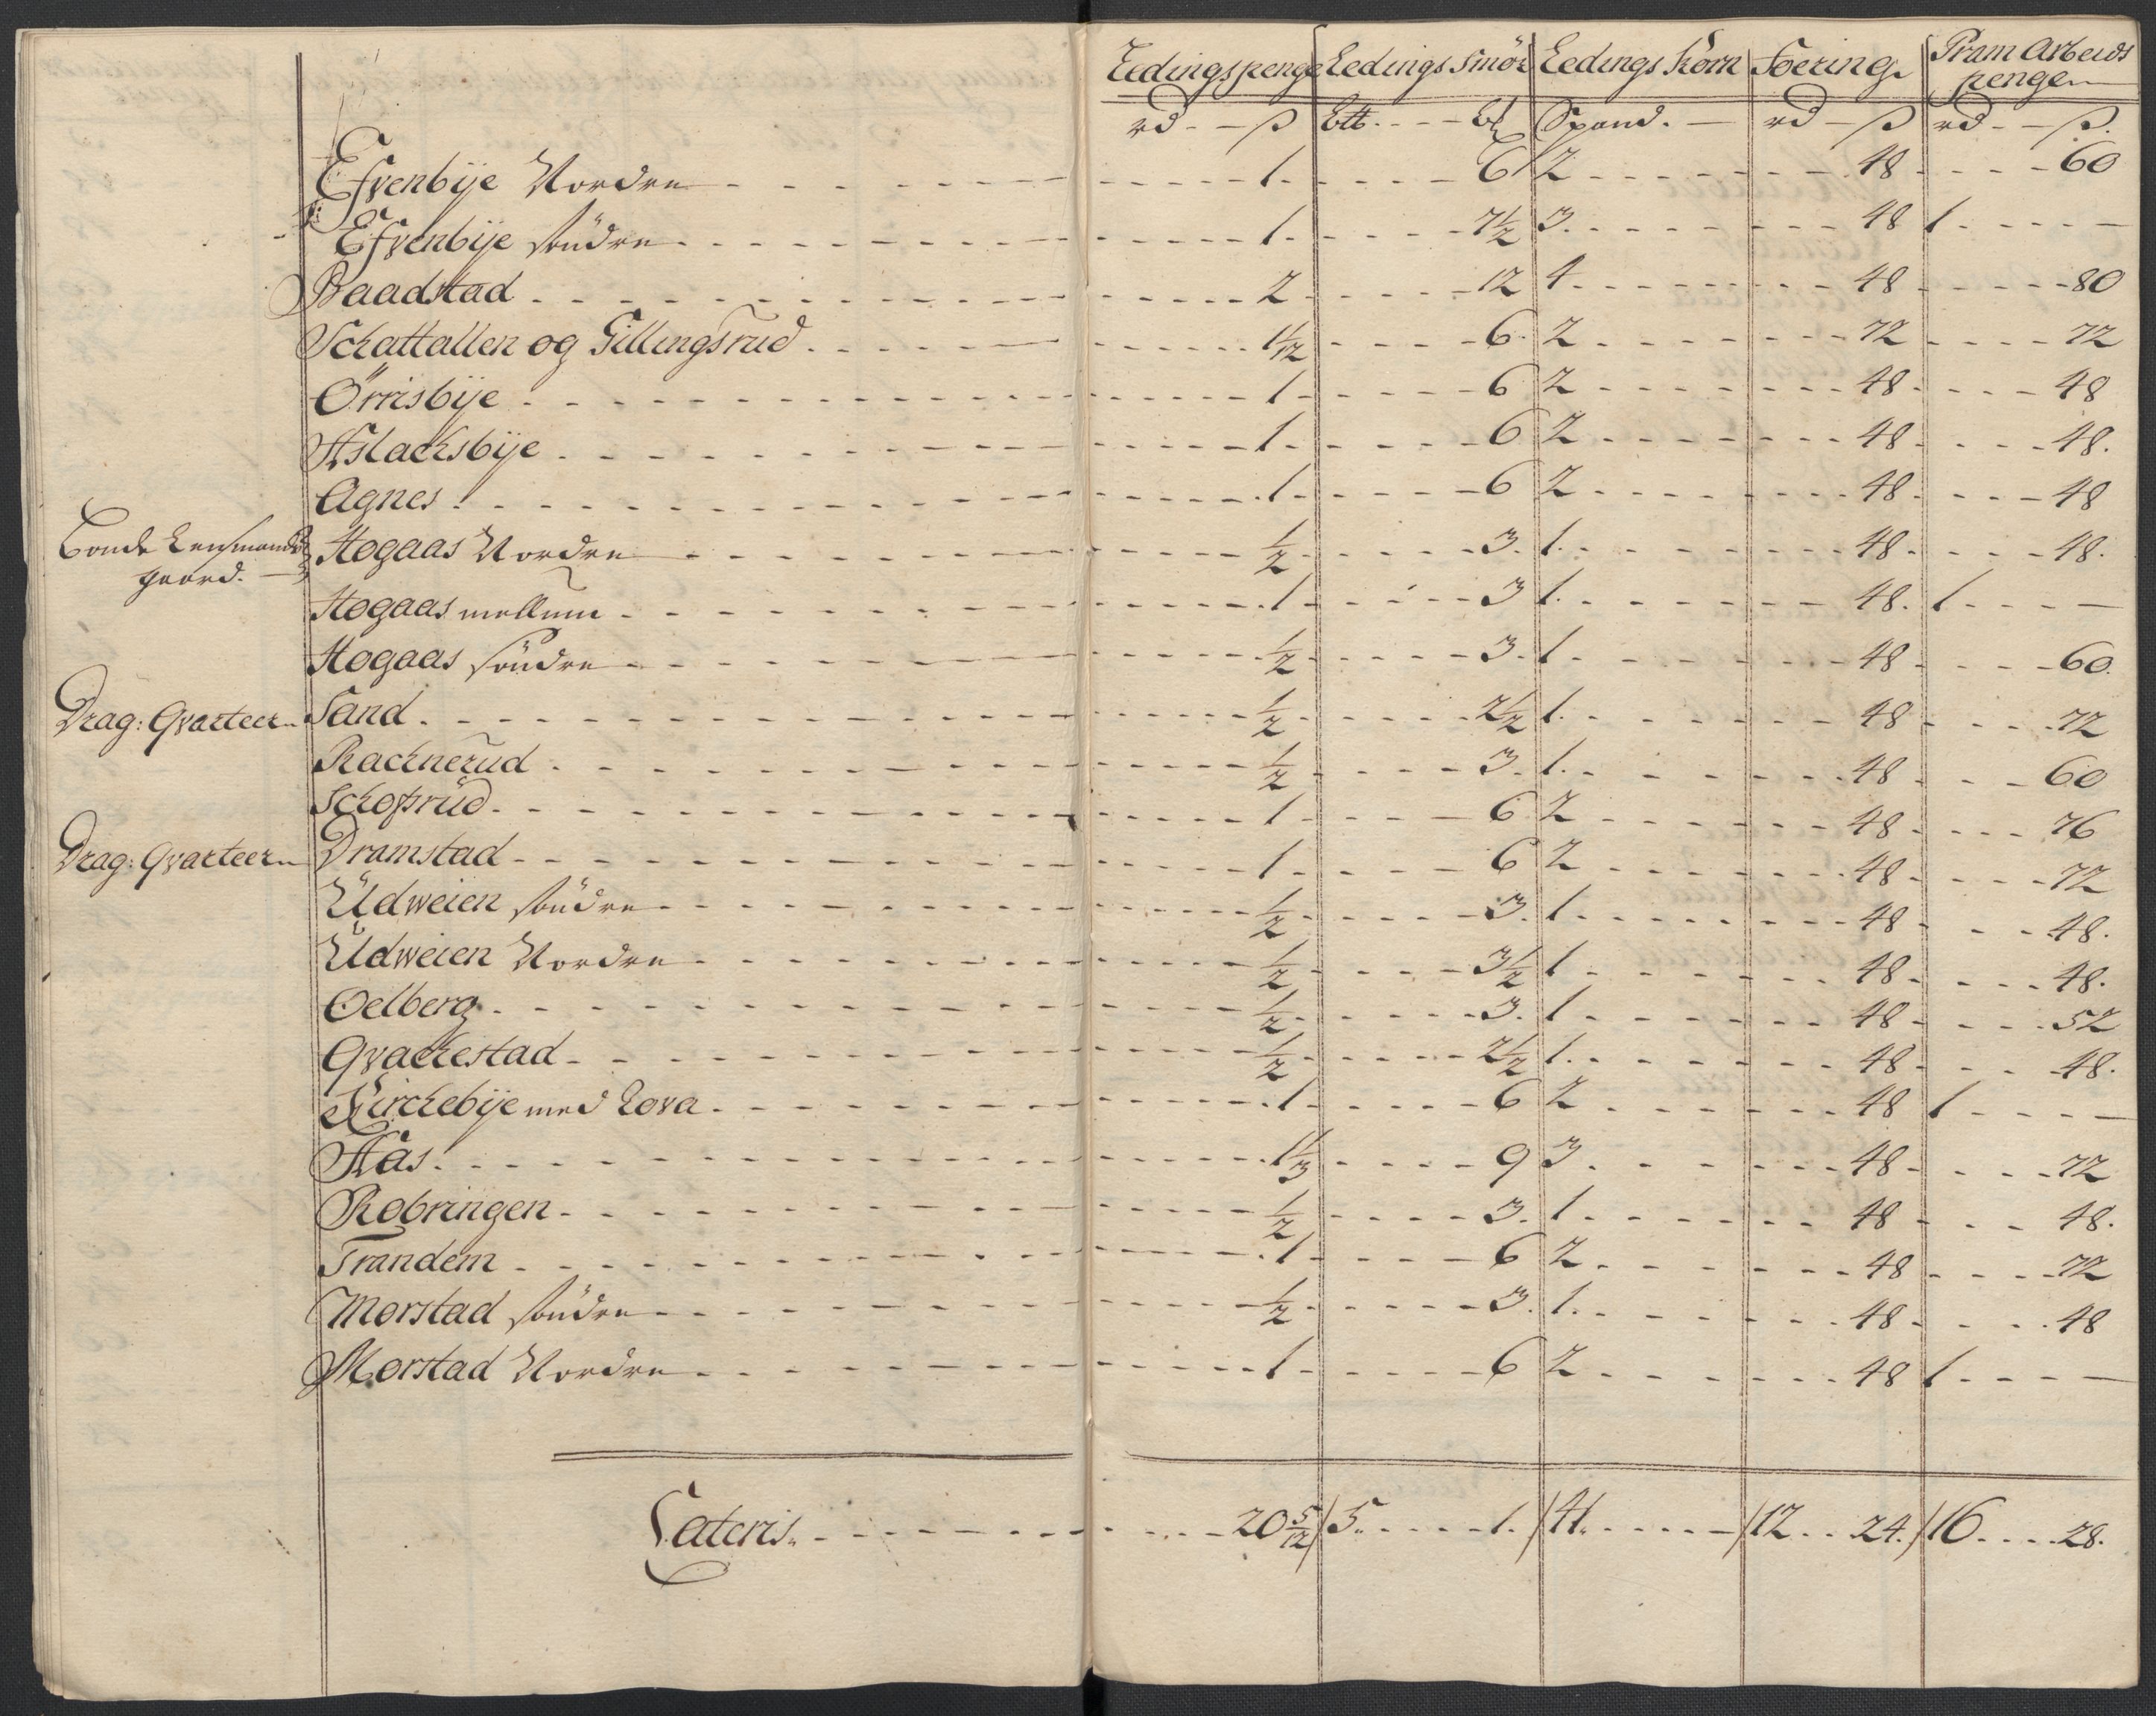 Ledingspenge Ledings Smör Ledings Korn Foering Pram Arbeids
pengen
rd - - ß Btt. - - - Bl Spand. - rd - ß rd - - ß.
Efvenbÿe Nordre - - - 1. - - - 6 2 - - - 48 - - - 60
Efvenbÿe söndre - - - 1. - - - 7½ 3. - - - 48 1 - - -
Baadstad - - - 2 - - - 12 4 - - - 48 - - - 80
Schattallen og Gillingsrud - - - 1 1/12 - - - 6. 2 - - - 72 - - - 72
Örrisbÿe - - - 1 - - - 6 2 - - - 48 - - - 48
Aslachsbÿe - - - 1 - - - 6 2 - - - 48 - - - 48.
Agnes - - - 1 - - - 6 2 - - - 48 - - - 48
Bonde Lensmands Høgaas Nordre - - - ½ - - - 3. 1. - - - 48 - - - 48.
gaard. -
Høgaas mellum - - - 1 - - - 3 1. - - - 48. 1 - - -
Høgaas söndre - - - ½ - - - 3. 1 - - - 48 - - - 60.
Drag: Qvarteer Sand - - - ½ - - - 2½ 1. - - - 48 - - - 72
Rachnerud - - - ½ - - - 3. 1. - - - 48 - - - 60
Schoßrud - - - 1 - - - 6 2 - - - 48 - - - 76
Drag: Qvarteer Dramstad - - - 1 - - - 6 2 - - - 48 - - - 72
Udweien söndre - - - ½ - - - 3. 1 - - - 48 - - - 48.
Udweien Nordre - - - ½ - - - 3½ 1 - - - 48 - - - 48.
Oelberg - - - ½ - - - 3. 1 - - - 48 - - - 52
Qvackestad - - - ½ - - - 2½ 1. - - - 48 - - - 48.
Kirchebÿe med Lova - - - 1 - - - 6 2 - - - 48 1 - - -
Aas - - - 1⅓ - - - 9 3 - - - 48 - - - 72
Robringen - - - ½ - - - 3. 1 - - - 48 - - - 48.
Trandem - - - 1 - - - 6 2 - - - 48 - - - 72
Morstad söndre - - - ½ - - - 3. 1. - - - 48 - - - 48
Morstad Nordre - - - 1 - - - 6 2 - - - 48 1 - - -
Lateris - - - 20 5/12 / 5. - - - 1. / 41. - - - / 12 - - 24. / 16 - - - 28.